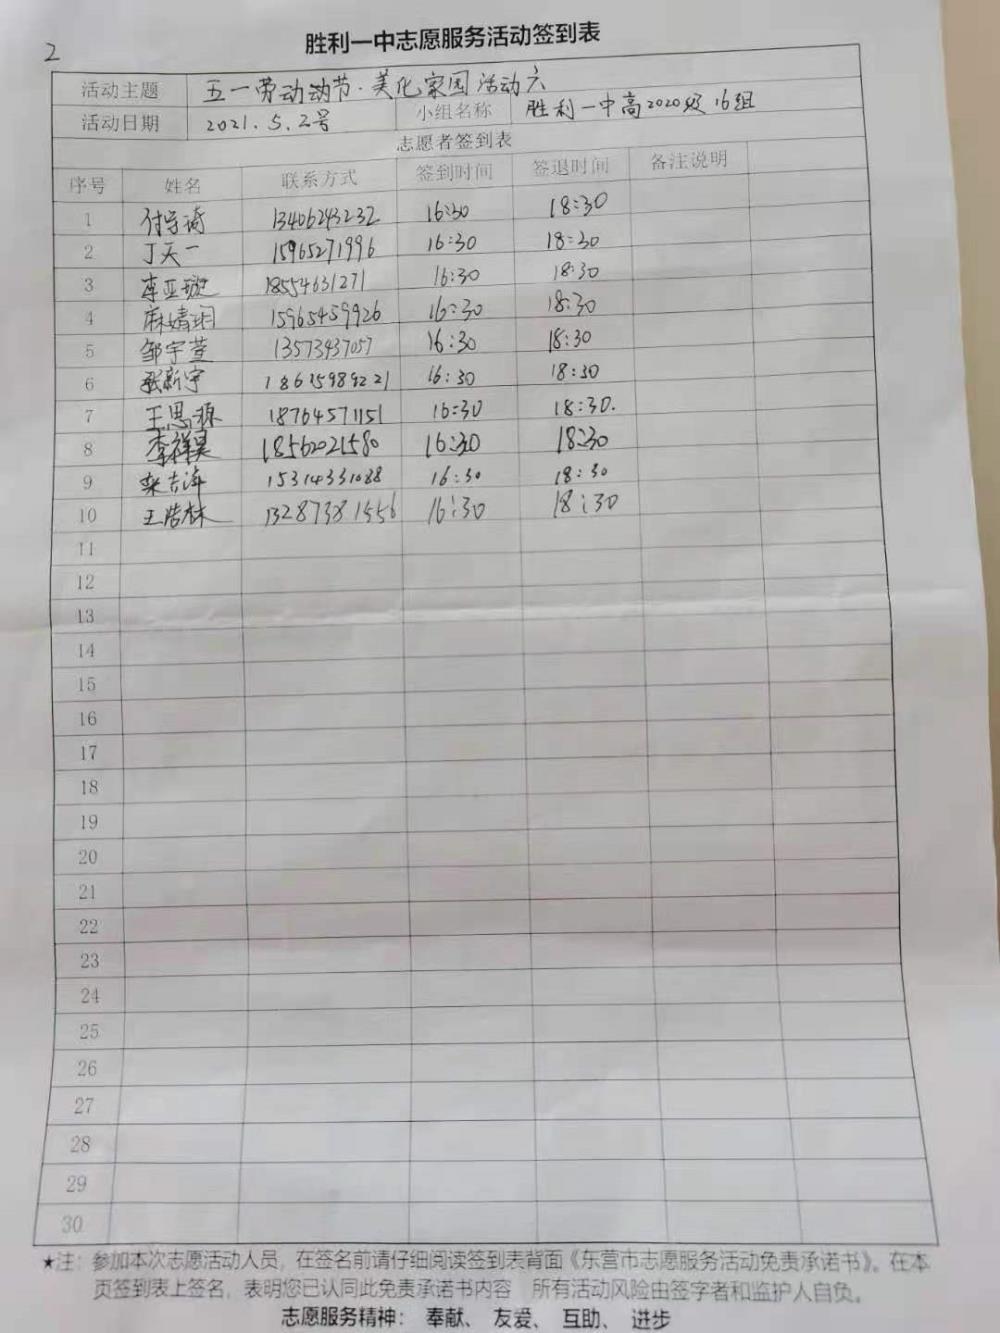 2
胜利一中志愿服务活动签到表
活动主题 五一劳动动节·美化家园活动六
活动日期 2021.5.2号 小组名称 胜利一中高2020级16组
志愿者签到表
序号 姓名 联系方式 签到时间 签退时间 备注说明
1 13406293232 16:30 18:30
2 丁天一 15965271996 16:30 18:30
3 李亚璇 18554631271 16:30 18:30
4 麻婧玥 15965459926 16:30 18:30
5 邹宇萱 13573437057 16:30 18:30
6 张新宇 18615989221 16:30 18:30
7 王思源 18764571151 16:30 18:30.
8 李祥昊 18562021580 16:30 18:30
9 栾吉海 15314331088 16:30 18:30
10 王浩林 13287381556 16:30 18:30
11
12
13
14
15
16
17
18
19
20
21
22
23
24
25
26
27
28
29
30
★注：参加本次志愿活动人员，在签名前请仔细阅读签到表背面《东营市志愿服务活动免责承诺书》。在本
页签到表上签名，表明您已认同此免责承诺书内容 所有活动风险由签字者和监护人自负。
志愿服务精神： 奉献、 友爱、 互助、 进步